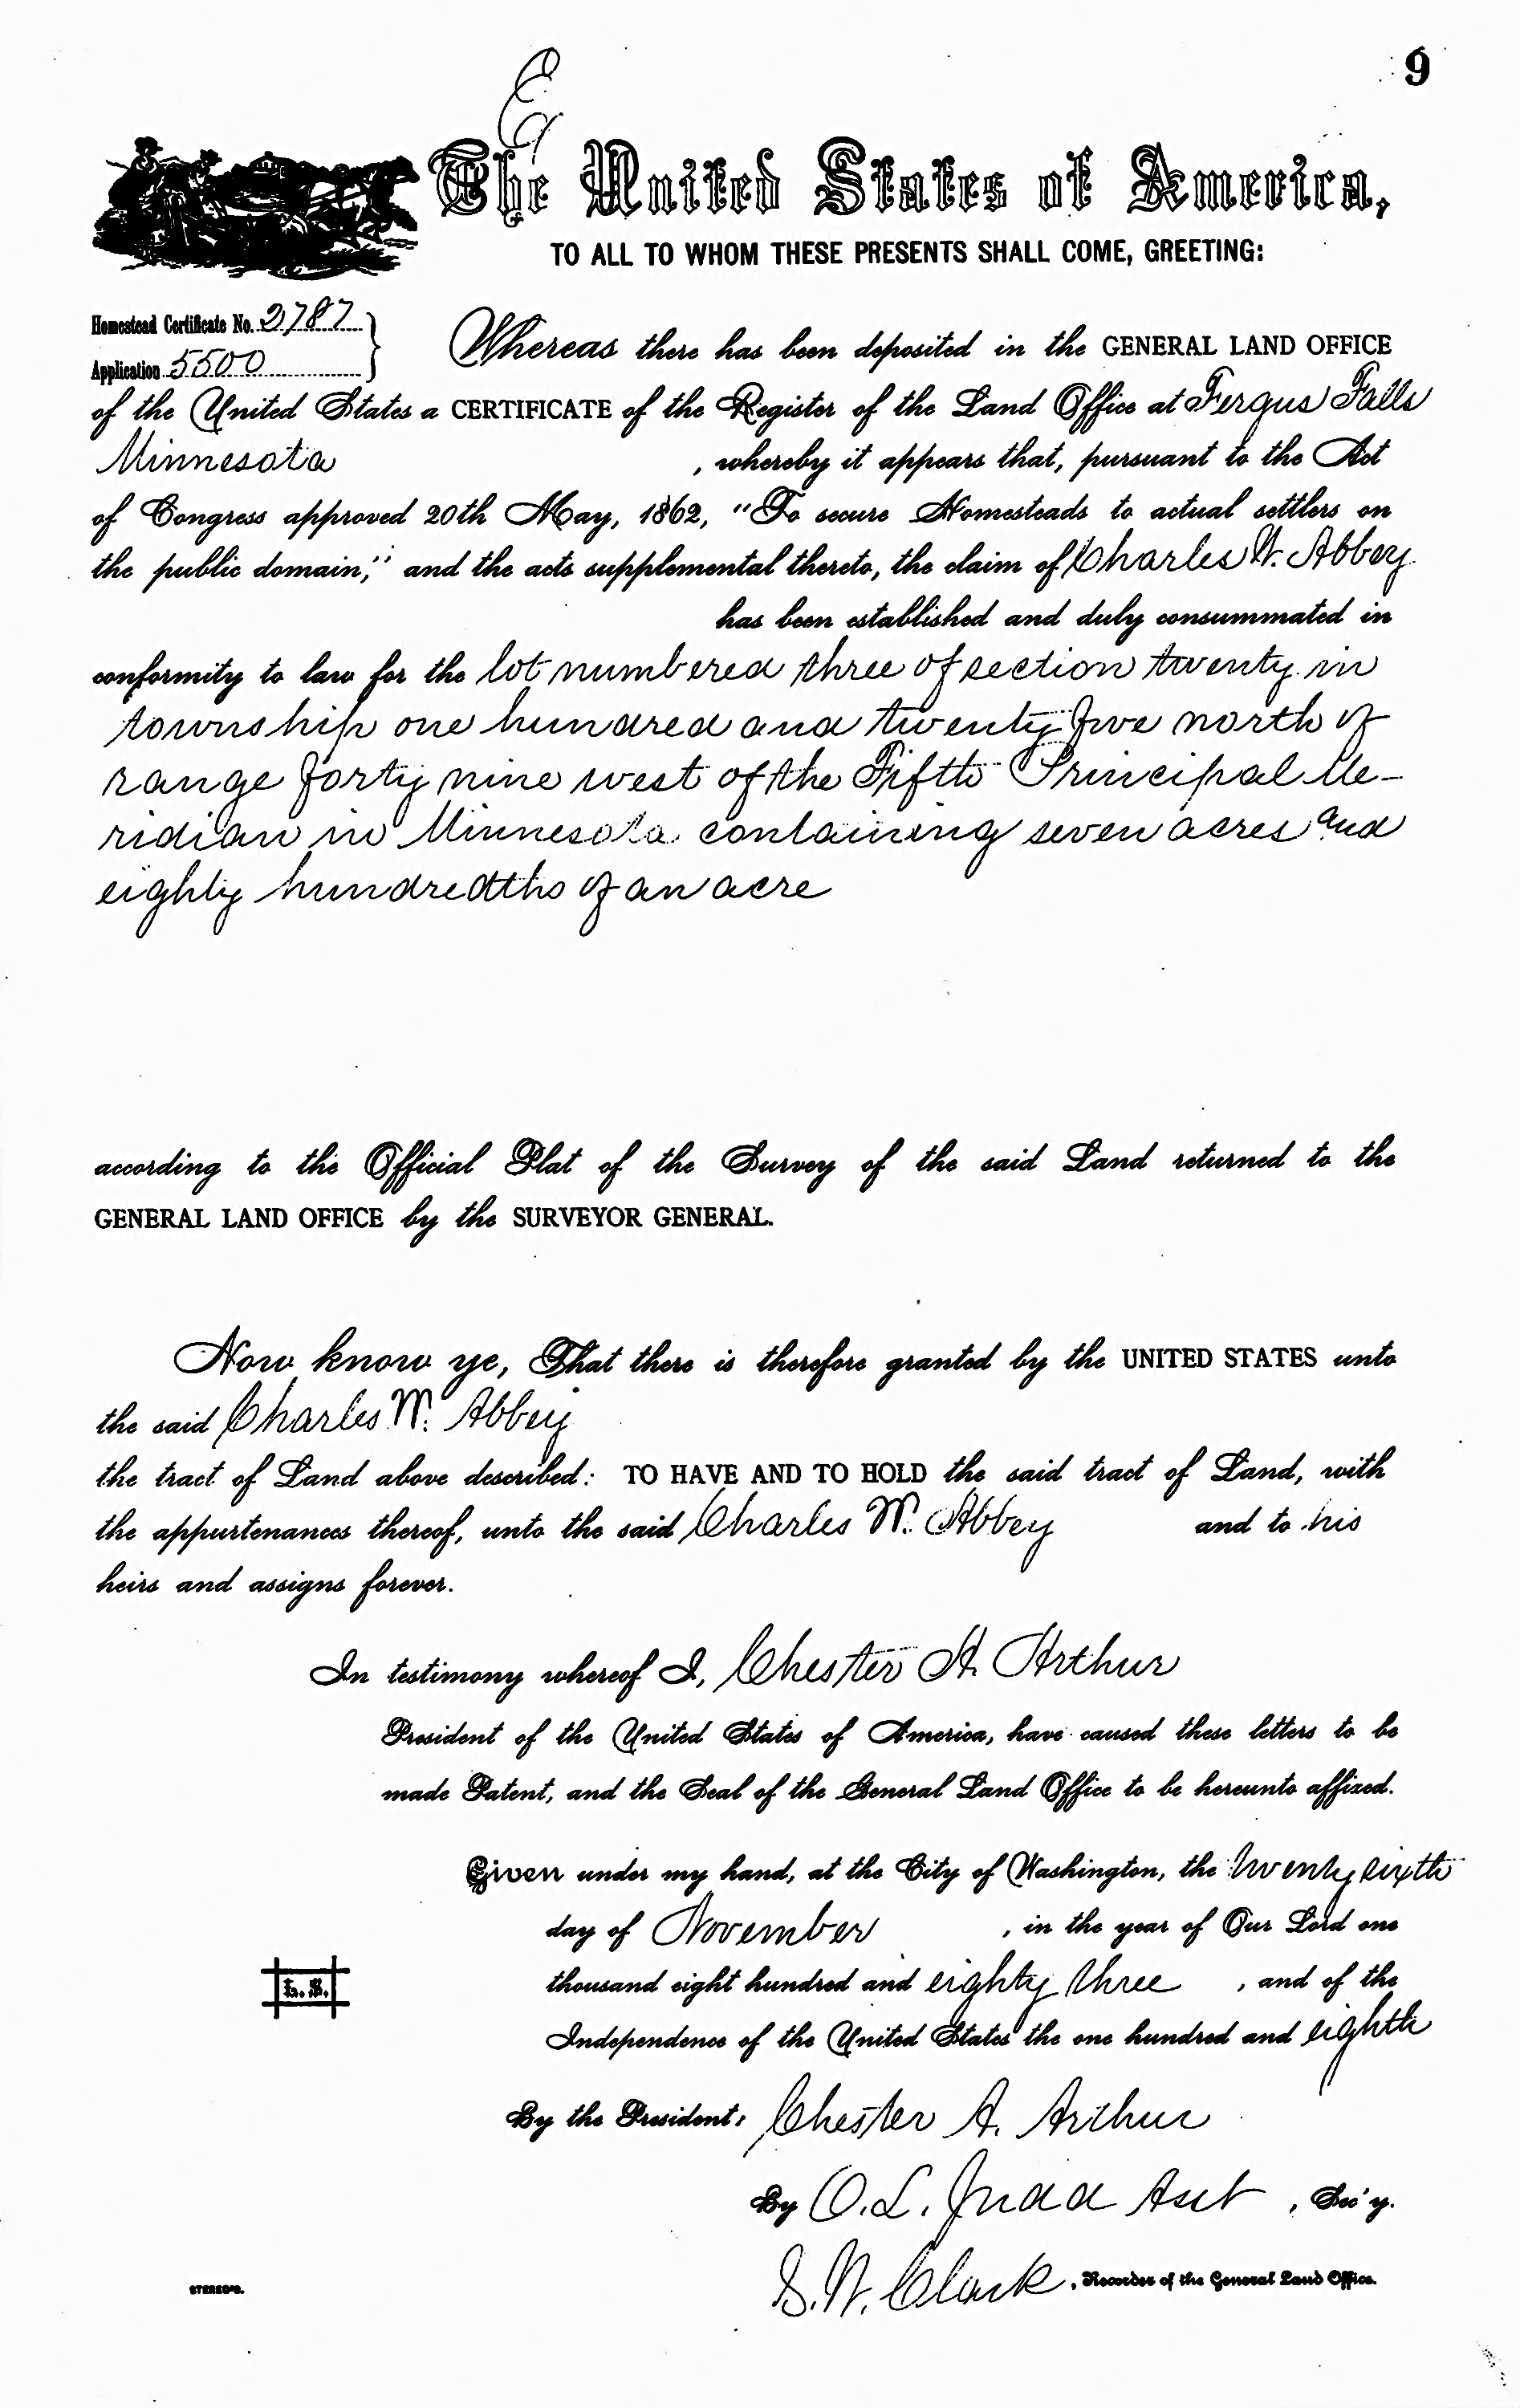 9
The United States of America,
TO ALL TO WHOM THESE PRESENTS SHALL COME, GREETING:
Homestead Certificate No. 2787
Application 5500
Whereas there has been deposited in the GENERAL LAND OFFICE
of the United States a CERTIFICATE of the Register of the Land Office at Fergus Falls
Minnesota , whereby it appears that, pursuant to the Act
of Congress approved 20th May, 1862, "To secure Homesteads to actual settlers on
the public domain," and the acts supplemental thereto, the claim of Charles W. Abbey
has been established and duly consummated in
conformity to law for the lot numbered three of section twenty in
township one hundred and twenty five north of
range forty nine west of the Fifth Principal Me-
ridian in Minnesota containing seven acres and
eighty hundredths of an acre
according to the Official Plat of the Survey of the said Land returned to the
GENERAL LAND OFFICE by the SURVEYOR GENERAL.
Now know ye, That there is therefore granted by the UNITED STATES unto
the said Charles W. Abbey
the tract of Land above described: TO HAVE AND TO HOLD the said tract of Land, with
the appurtenances thereof, unto the said Charles W. Abbey and to his
heirs and assigns forever.
In testimony whereof I, Chester A. Arthur
President of the United States of America, have caused these letters to be
made Patent, and the Seal of the General Land Office to be hereunto affixed.
Given under my hand, at the City of Washington, the twenty sixth
day of November , in the year of Our Lord one
thousand eight hundred and eighty three , and of the
Independence of the United States the one hundred and eighth
L. S.
By the President: Chester A. Arthur
By O. L. Judd Asst , Sec'y.
S. W. Clark , Recorder of the General Land Office.
STEREO'D.